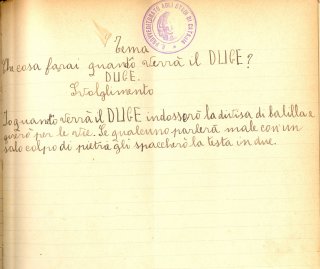 R. PROVVEDITORATO AGLI STUDI DI CATANIA
Tema
Che cosa farai quando verrà il DUCE?
DUCE.
Svolghimento
Io quando verrà il DUCE indosserò la divisa di balilla e
girerò per le vie. Se qualcuno parlerà male con un
solo colpo di pietra gli spaccherò la testa in due.